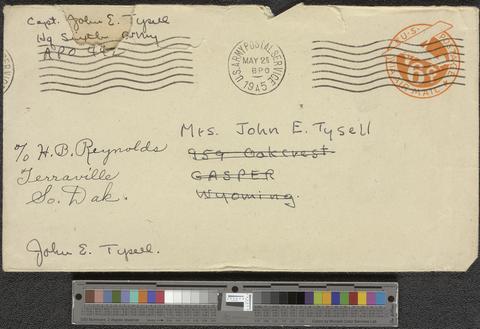 Capt. John E. Tysell
Hq Army
APO
U.S. ARMY POSTAL SERVICE
MAY 25
BPO
1945
U.S. POSTAGE
VIA AIR MAIL
Mrs. John E. Tysell
959 Oakcrest
GASPER
Wyoming.
% H. B. Reynolds
Terraville
So. Dak.
John E. Tysell.